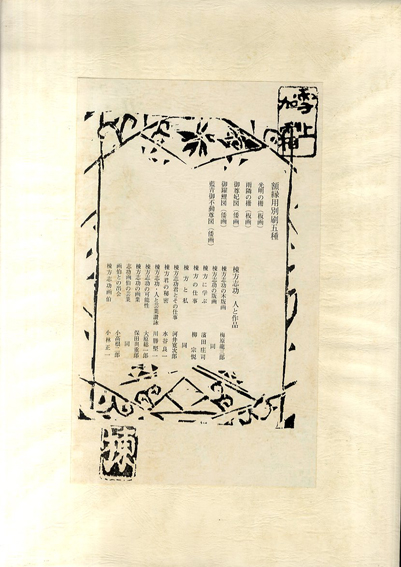 雪上加霜
額縁用別刷五種
光明の柵〔板画〕
の柵〔板画〕
御尊妃図〔倭画〕
〔倭画〕
藍青御不動尊図〔倭画〕
棟方志功・人と作品
棟方志功の木版画 梅原龍三郎
棟方志功の版画 同
棟方に学ぶ 濱田庄司
棟方の仕事 柳宗悦
棟方と私 同
棟方志功君とその仕事 河井寛次郎
棟方君の秘密 水谷良一
棟方志功・人と芸業讃 川勝堅一
棟方志功の可能性 大原總一郎
棟方志功の画業 保田與重郎
志功画伯の芸業 同
画伯との出会 小高根二郎
棟方志功画伯 小林正一
棟